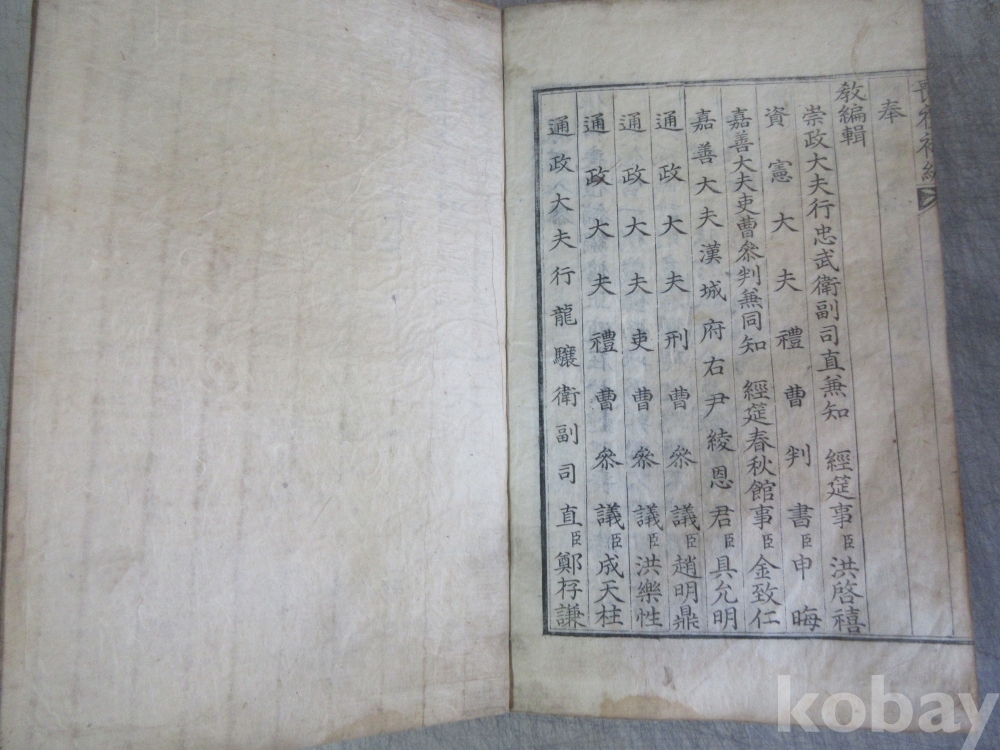 奉
教編輯
崇政大夫行忠武衛副司直兼知 經筵事臣洪啓禧
資憲大夫禮曹判書臣申晦
嘉善大夫吏曹叅判兼同知 經筵春秋館事臣金致仁
嘉善大夫漢城府右尹綾恩君臣具允明
通政大夫刑曹叅議臣趙明鼎
通政大夫吏曹叅議臣洪樂性
通政大夫禮曹叅議臣成天柱
通政大夫行龍驤衛副司直臣鄭存謙
kobay